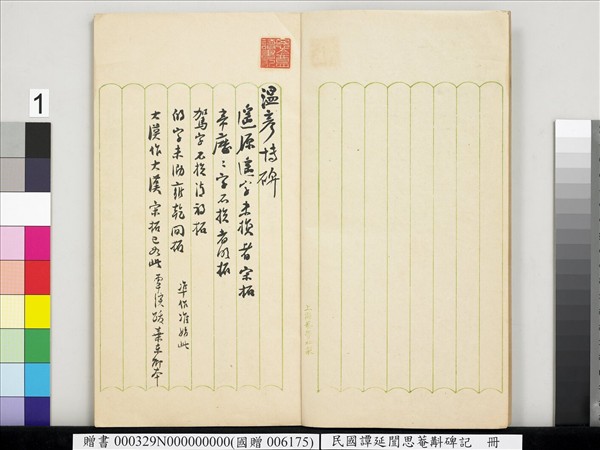 溫彥博碑
遙源遙字未損者宋拓
帝歷二字不損者明拓
駕字不損清初拓
的字未泐雍乾間拓
準作准始此
大漢作大漢宋拓已如此
1
贈書 000329N000000000(國贈 006175)
民國譚延闓思菴斠碑記 冊